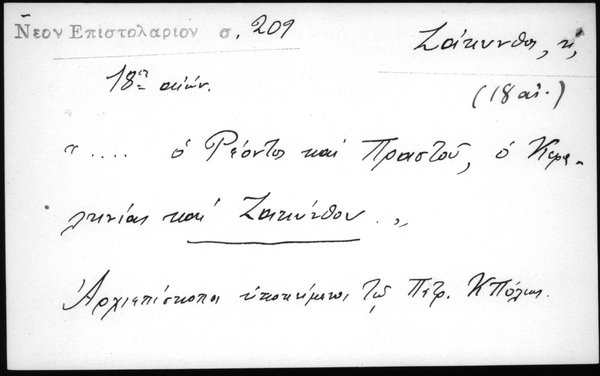 Νεον Επιστολαριον σ. 209
Ζάκυνθος, η,
18ος αιών.
(18 αι.)
" .... ὁ Ρέοντος καί Πραστοῦ, ὁ Κεφα-
ληνίας καί Ζακύνθου . "
Ἀρχιεπίσκοποι ὑποκείμενοι τῷ Πατρ. ΚΠόλεως.